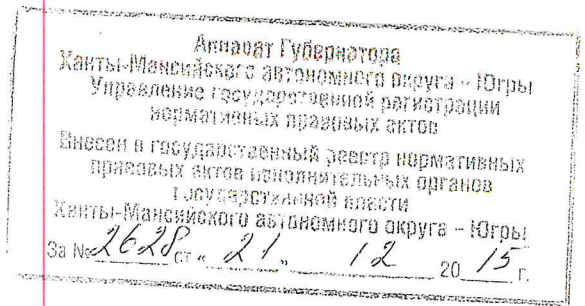 Аппарат Губернатора
Ханты-Мансийского автономного округа – Югры
Управление государственной регистрации
нормативных правовых актов
Внесен в государственный реестр нормативных
правовых актов исполнительных органов
государственной власти
Ханты-Мансийского автономного округа – Югры
За № 2628 от « 21 » 12 20 15 г.